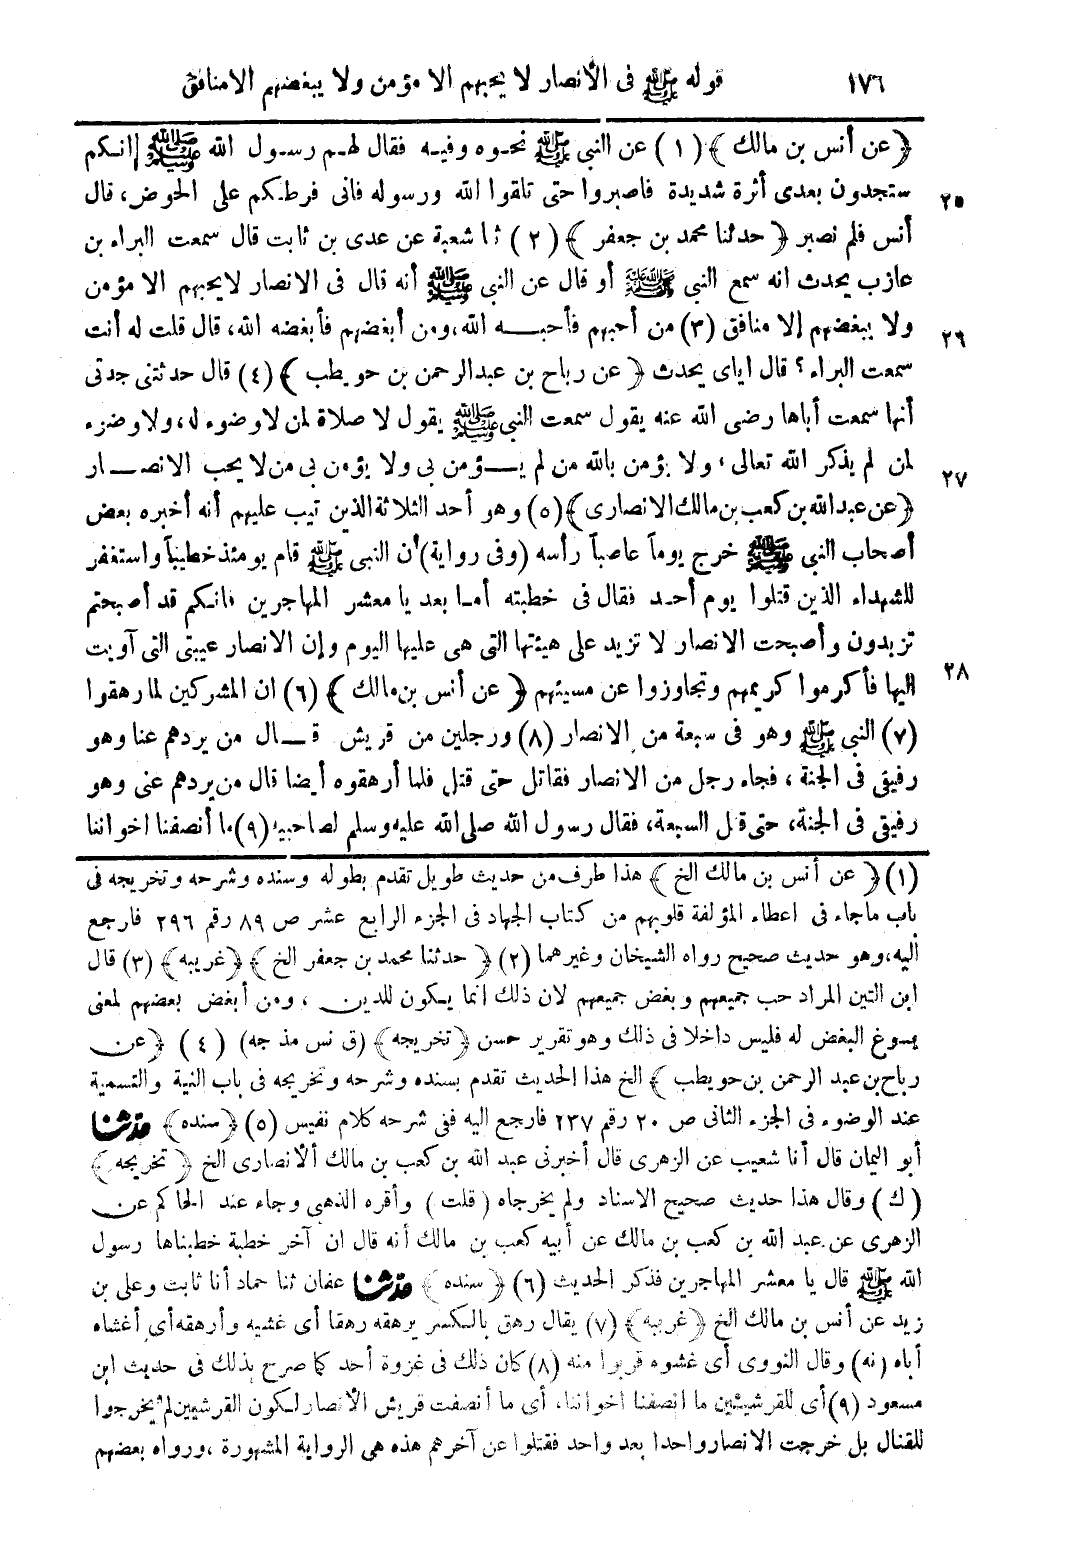 ١٧٦ قوله ﷺ فى الأنصار لا يحبهم الا مؤمن ولا يبغضهم الا منافق
﴿ عن أنس بن مالك ﴾ (١) عن النبي ﷺ نحوه وفيه فقال لهم رسول الله ﷺ إنكم
٢٥ ستجدون بعدى أثرة شديدة فاصبروا حتى تلقوا الله ورسوله فانى فرطكم على الحوض، قال
أنس فلم نصبر ﴿ حدثنا محمد بن جعفر ﴾ (٢) ثنا شعبة عن عدى بن ثابت قال سمعت البراء بن
عازب يحدث انه سمع النبي ﷺ أو قال عن النبي ﷺ أنه قال فى الانصار لايحبهم الا مؤمن
٢٦ ولا يبغضهم إلا منافق (٣) من أحبهم فأحبه الله، ومن أبغضهم فأبغضه الله، قال قلت له أنت
سمعت البراء؟ قال اياى يحدث ﴿ عن رباح بن عبدالرحمن بن حويطب ﴾ (٤) قال حدثتنى جدتى
أنها سمعت أباها رضى الله عنه يقول سمعت النبي ﷺ يقول لا صلاة لمن لاوضوء له، ولا وضوء
٢٧ لمن لم يذكر الله تعالى، ولا يؤمن بالله من لم يؤمن بى ولا يؤمن بى من لا يحب الانصار
﴿ عن عبدالله بن كعب بن مالك الانصارى ﴾ (٥) وهو أحد الثلاثة الذين تيب عليهم أنه أخبره بعض
أصحاب النبي ﷺ خرج يوماً عاصباً رأسه (وفى رواية) أن النبى ﷺ قام يومئذ خطيباً واستغفر
للشهداء الذين قتلوا يوم أحد فقال فى خطبته أما بعد يا معشر المهاجرين فانكم قد أصبحتم
تزيدون وأصبحت الانصار لا تزيد على هيئتها التى هى عليها اليوم وإن الانصار عيبتى التى آويت
٢٨ اليها فأكرموا كريمهم وتجاوزوا عن مسيئهم ﴿ عن أنس بن مالك ﴾ (٦) ان المشركين لما رهقوا
(٧) النبي ﷺ وهو فى سبعة من الانصار (٨) ورجلين من قريش قال من يردهم عنا وهو
رفيقى فى الجنة، فجاء رجل من الانصار فقاتل حتى قتل فلما أرهقوه أيضا قال من يردهم عنى وهو
رفيقى فى الجنة، حتى قتل السبعة، فقال رسول الله صلى الله عليه وسلم لصاحبيه (٩) ما أنصفنا اخواننا
(١) ﴿ عن أنس بن مالك الخ ﴾ هذا طرف من حديث طويل تقدم بطوله وسنده وشرحه وتخريجه فى
باب ماجاء فى اعطاء المؤلفة قلوبهم من كتاب الجهاد فى الجزء الرابع عشر ص ٨٩ رقم ٢٩٦ فارجع
اليه، وهو حديث صحيح رواه الشيخان وغيرهما (٢) ﴿ حدثنا محمد بن جعفر الخ ﴾ ﴿ غريبه ﴾ (٣) قال
ابن التين المراد حب جميعهم وبغض جميعهم لان ذلك انما يكون للدين، ومن أبغض بعضهم لمعنى
يسوغ البغض له فليس داخلا فى ذلك وهو تقرير حسن ﴿ تخريجه ﴾ (ق نس مذ جه) (٤) ﴿ عن
رباح بن عبد الرحمن بن حويطب ﴾ الخ هذا الحديث تقدم بسنده وشرحه وتخريجه فى باب النية والتسمية
عند الوضوء فى الجزء الثانى ص ٢٠ رقم ٢٣٧ فارجع اليه ففى شرحه كلام نفيس (٥) ﴿ سنده ﴾ حدثنا
أبو اليمان قال أنا شعيب عن الزهرى قال أخبرنى عبد الله بن كعب بن مالك الأنصارى الخ ﴿ تخريجه ﴾
(ك) وقال هذا حديث صحيح الاسناد ولم يخرجاه (قلت) وأقره الذهبى وجاء عند الحاكم عن
الزهرى عن عبد الله بن كعب بن مالك عن أبيه كعب بن مالك أنه قال ان آخر خطبة خطبناها رسول
الله ﷺ قال يا معشر المهاجرين فذكر الحديث (٦) ﴿ سنده ﴾ حدثنا عفان ثنا حماد أنا ثابت وعلى بن
زيد عن أنس بن مالك الخ ﴿ غريبه ﴾ (٧) يقال رهق بالكسر يرهقه رهقا أى غشيه وأرهقه أى أغشاه
أباه (نه) وقال النووى أى غشوه قربوا منه (٨) كان ذلك فى غزوة أحد كما صرح بذلك فى حديث ابن
مسعود (٩) أى للقرشيين ما انصفنا اخواننا، أى ما أنصفت قريش الأنصار لكون القرشيين لم يخرجوا
للقتال بل خرجت الانصار واحدا بعد واحد فقتلوا عن آخرهم هذه هى الرواية المشهورة، ورواه بعضهم